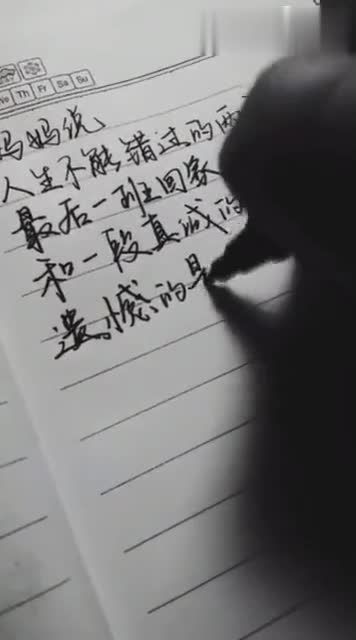 Th Fr Sa Su
妈妈说
人生不能错过的两
最后一班回家
和一段真诚的
遗憾的是